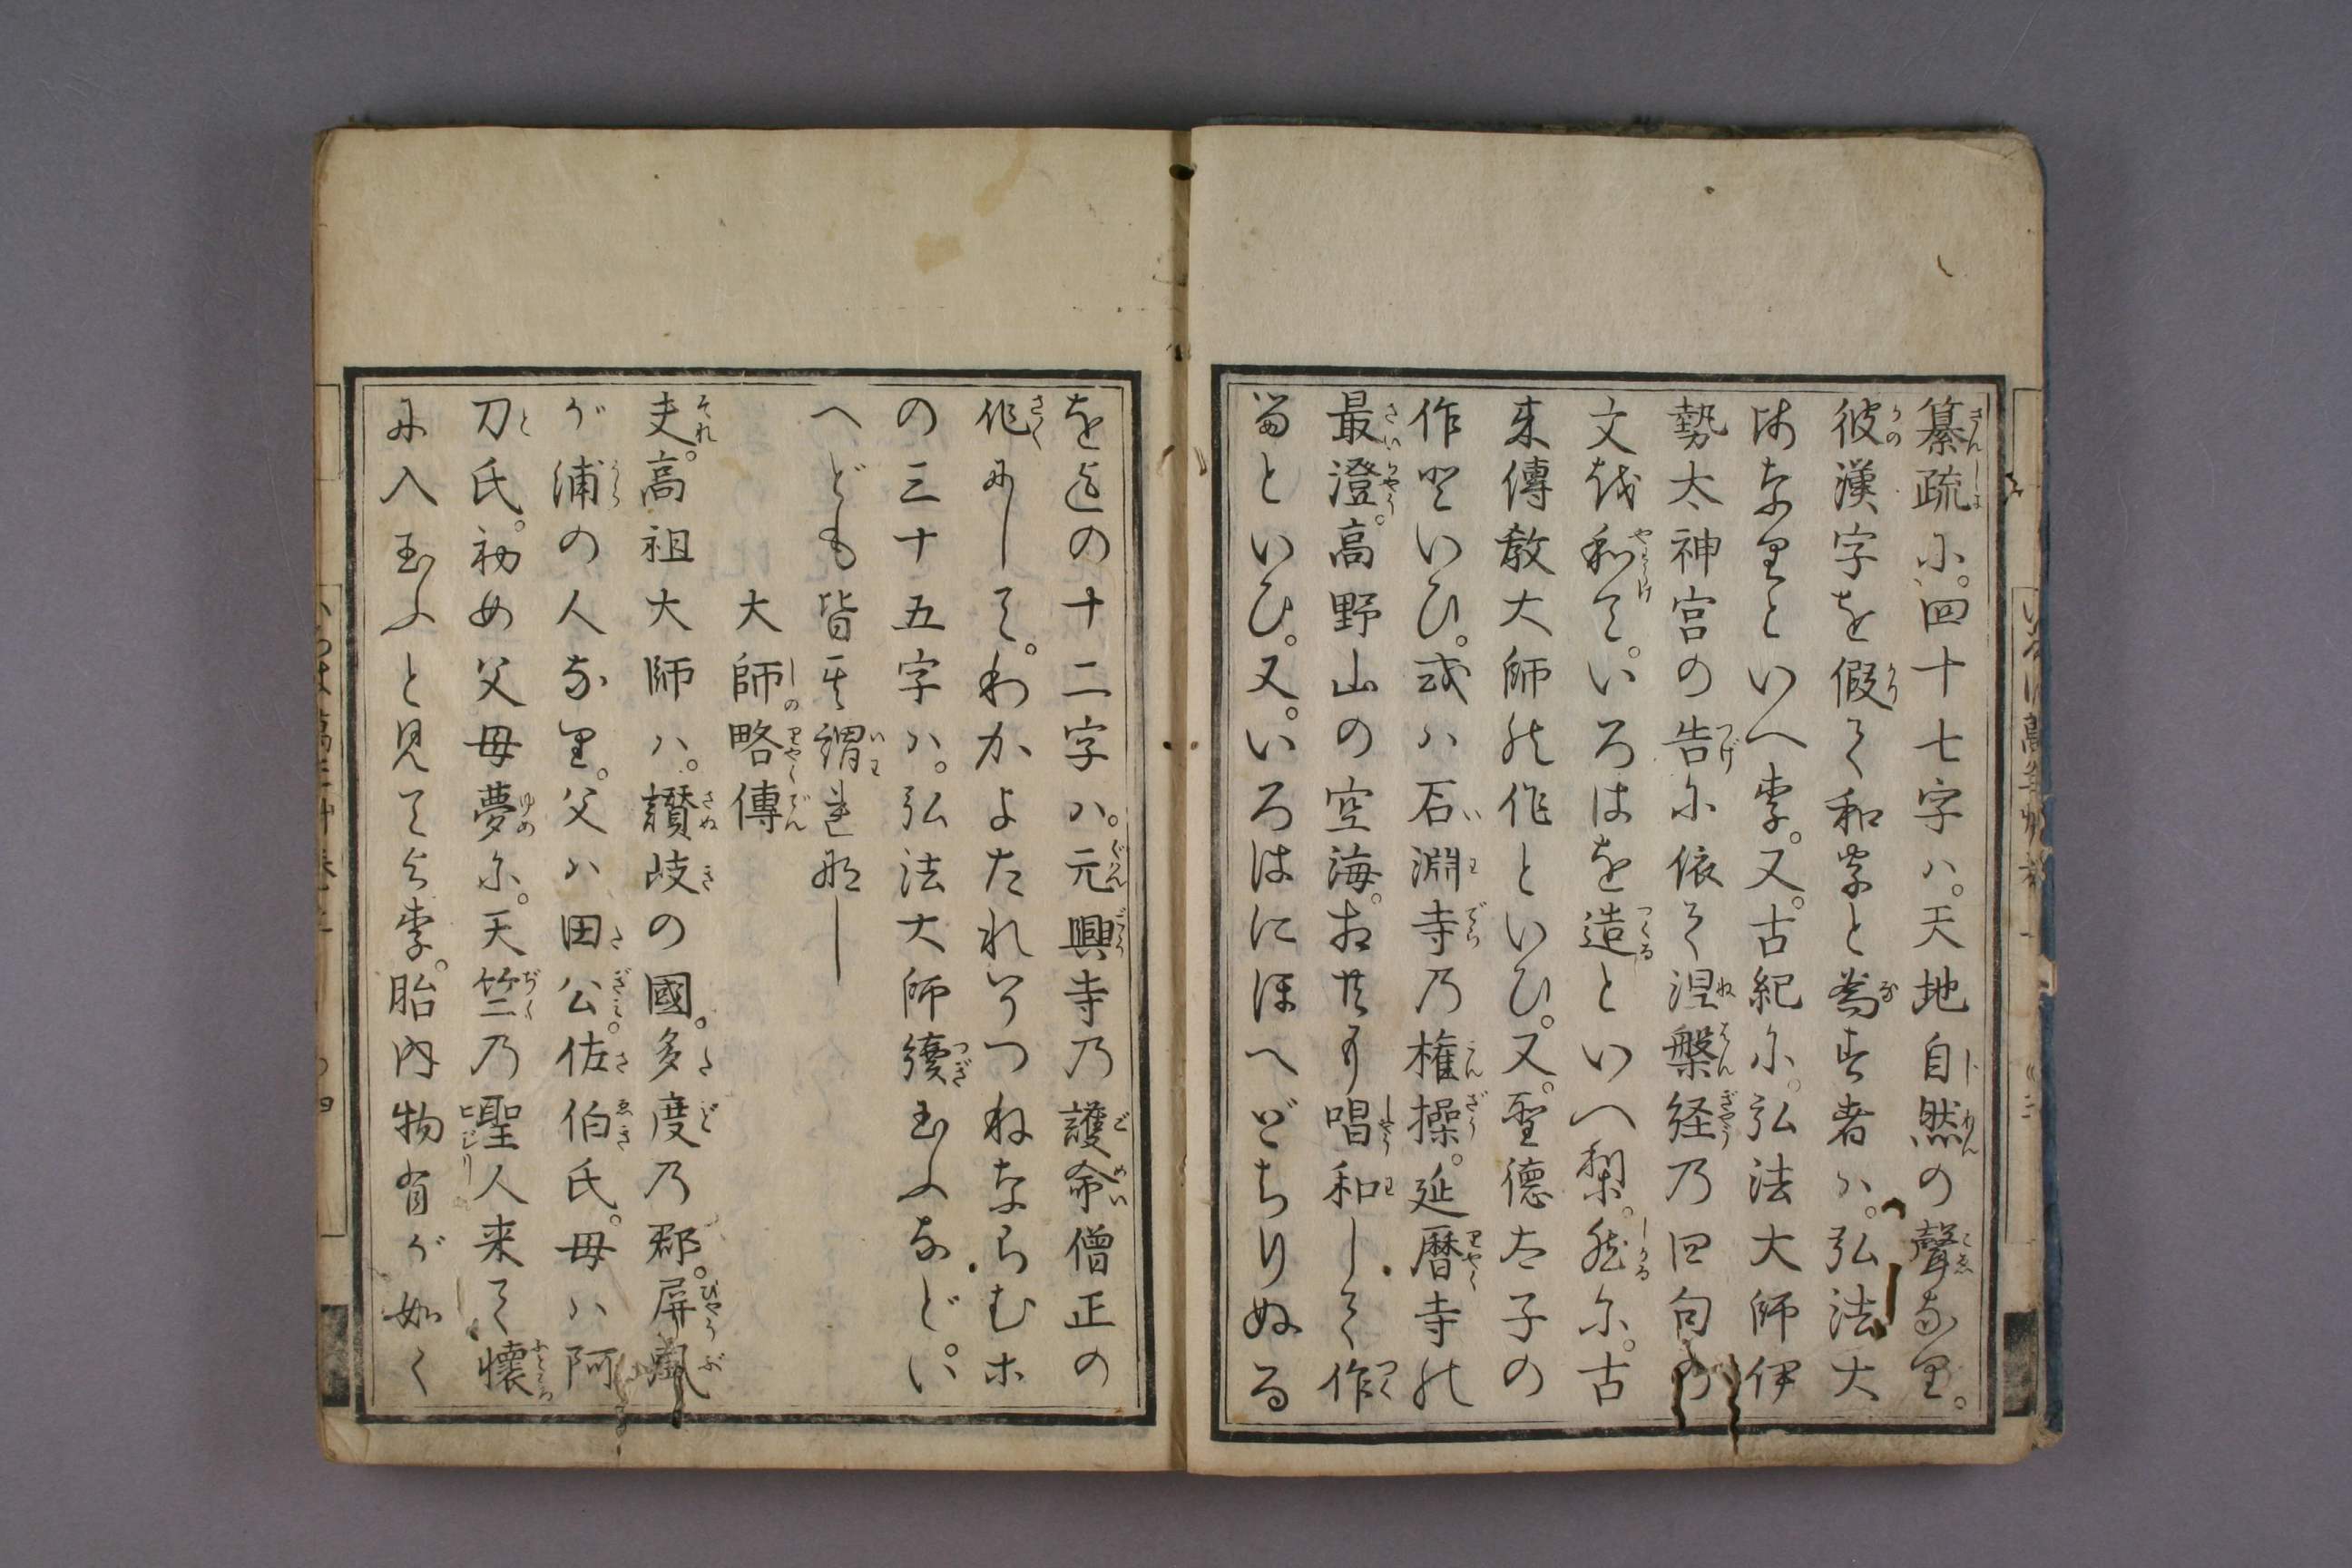 纂疏に。四十七字ハ。天地自然の聲なり。
彼漢字を假て和字と為す者ハ。弘法大
師なりといへり。又。古紀に。弘法大師伊
勢太神宮の告に依て涅槃経乃四句の
文を和て。いろはを造といへり。然に。古
来傳教大師の作といひ。又。聖徳太子の
作といひ。或ハ石淵寺乃権操。延暦寺の
最澄。高野山の空海。相共に唱和して作
るといひ。又。いろはにほへどちりぬる
を迄の十二字ハ。元興寺乃護命僧正の
作にして。わかよたれそつねならむ已下
の三十五字ハ。弘法大師續玉ふなど。い
へども皆其謂連なし
大師略傳
夫。高祖大師ハ。讃岐の國。多度乃郡。屏風
が浦の人なり。父ハ田公。佐伯氏。母ハ阿
刀氏。初め父母夢に。天竺乃聖人来て懐
に入玉ふと見てより。胎内物有が如く